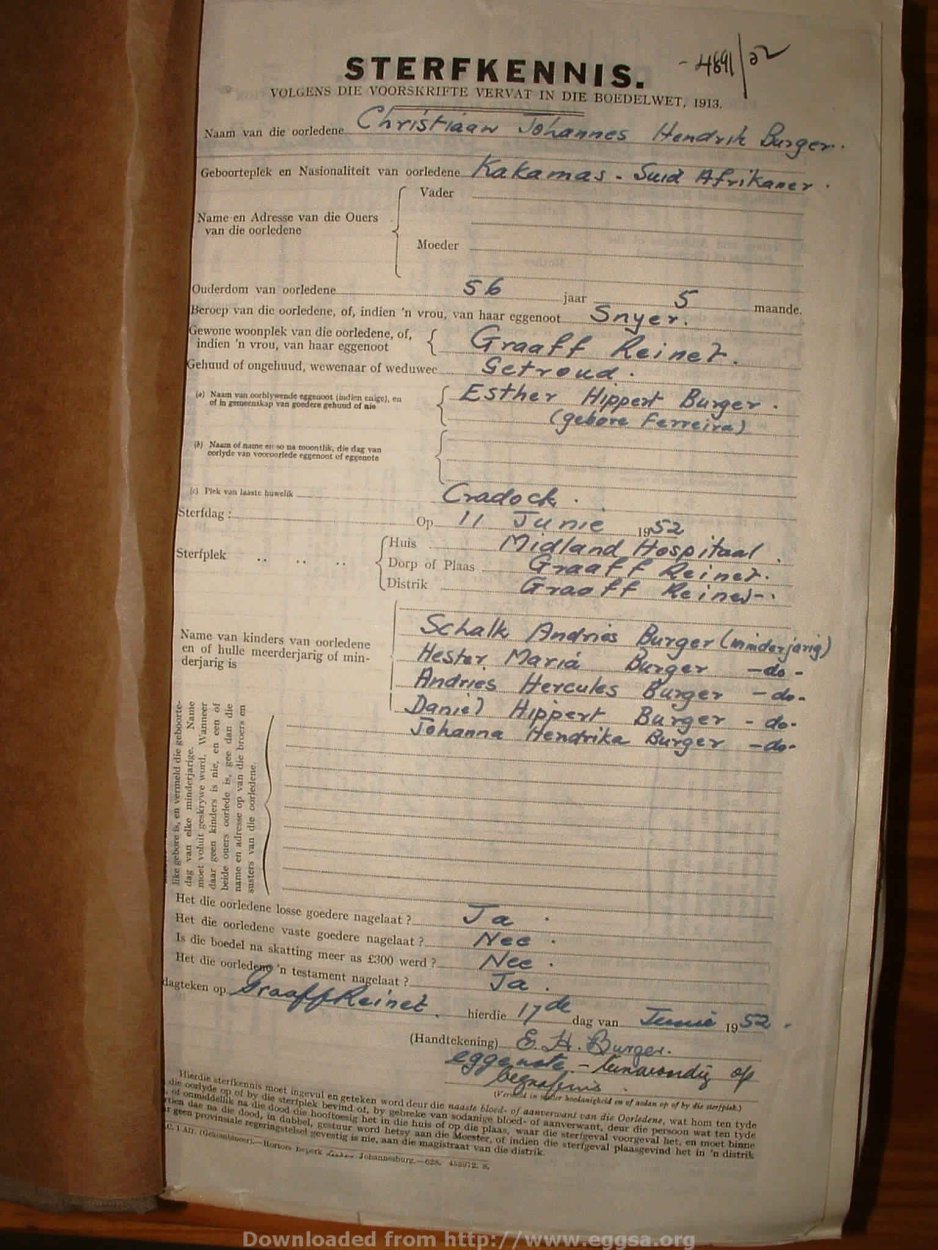 - 4691/52
STERFKENNIS.
VOLGENS DIE VOORSKRIFTE VERVAT IN DIE BOEDELWET, 1913.
Naam van die oorledene Christiaan Johannes Hendrik Burger.
Geboorteplek en Nasionaliteit van oorledene Kakamas - Suid Afrikaner.
Name en Adresse van die Ouers van die oorledene
Vader
Moeder
Ouderdom van oorledene 56 jaar 5 maande.
Beroep van die oorledene, of, indien 'n vrou, van haar eggenoot Snyer.
Gewone woonplek van die oorledene, of,
indien 'n vrou, van haar eggenoot Graaff Reinet.
Gehuud of ongehuud, wewenaar of weduwee Getroud.
(a) Naam van oorblywende eggenoot (indien enige), en
of in gemeenskap van goedere gehuud of nie
Esther Hippert Burger.
(gebore Ferreira)
(b) Naam of name en so na moontlik, die dag van
oorlyde van vooroorlede eggenoot of eggenote
(c) Plek van laaste huwelik Cradock.
Sterfdag : Op 11 Junie 1952
Sterfplek
Huis Midland Hospitaal.
Dorp of Plaas Graaff Reinet.
Distrik Graaff Reinet.
Name van kinders van oorledene
en of hulle meerderjarig of min-
derjarig is
Schalk Andries Burger (minderjarig)
Hester Maria Burger - do -
Andries Hercules Burger - do -
Daniel Hippert Burger - do -
Johanna Hendrika Burger - do -
like gebore is, en vermeld die geboorte-
dag van elke minderjarige. Name
moet voluit geskrywe word. Wanneer
daar geen kinders is nie, en een of
beide ouers oorlede is, gee dan die
name en adresse op van die broers en
susters van die oorledene.
Het die oorledene losse goedere nagelaat ? Ja.
Het die oorledene vaste goedere nagelaat ? Nee.
Is die boedel na skatting meer as £300 werd ? Nee.
Het die oorledene 'n testament nagelaat ? Ja.
dagteken op Graaff Reinet. hierdie 17de dag van Junie 1952.
(Handtekening) E. H. Burger.
eggenote - teenwoordig op
begrafnis.
(Vermeld in watter hoedanigheid en of aldan op of by die sterfplek.)
Hierdie sterfkennis moet ingevul en geteken word deur die naaste bloed- of aanverwant van die Oorledene, wat hom ten tyde
die oorlyde op of by die sterfplek bevind of, by gebreke van sodanige bloed- of aanverwant, deur die persoon wat ten tyde
of onmiddellik na die dood die hooftoesig het in die huis of op die plaas, waar die sterfgeval voorgeval het, en moet binne
tien dae na die dood, in dubbel, gestuur word hetsy aan die Meester, of indien die sterfgeval plaasgevind het in 'n distrik
geen provinsiale regeringstelsel gevestig is nie, aan die magistraat van die distrik.
Hortors Beperk Johannesburg.—628.
Downloaded from http://www.eggsa.org